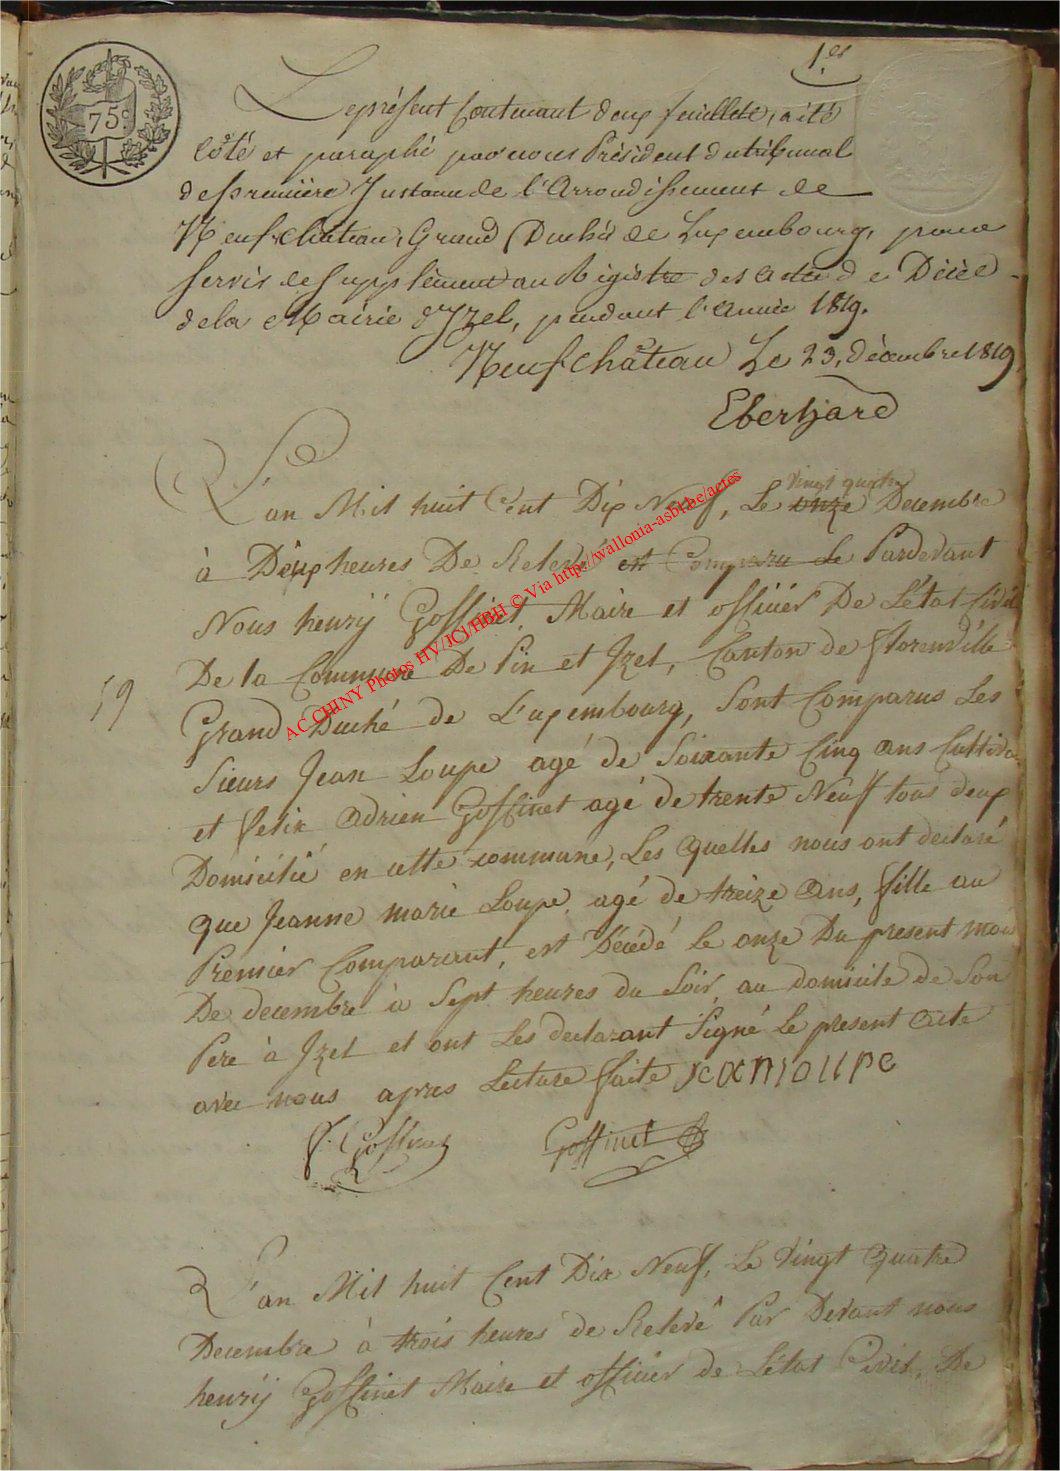 1.er
75 c
Le présent Contenant deux feuillets, a été
Côté et paraphé par nous Président du tribunal
de Première Instance de l'Arrondissement de
Neufchâteau, Grand Duché de Luxembourg, pour
Servir de Supplément au Régistre des Actes de Décès
de la Mairie d'Izel, pendant l'Année 1819.
Neufchâteau Le 23, décembre 1819
Eberhard
vingt quatre
L'an Mil huit Cent Dix Neuf, Le onze Decembre
à Deux heures De Relevé est Comparu de Pardevant
Nous henrÿ Goffinet, Maire et officier De L'état Civil
De la Commune De Pin et Izel, Canton de Florenville
59
Grand Duché de Luxembourg, Sont Comparus Les
Sieurs Jean Loupe agé de Soixante Cinq ans Cultiva
et Felix Adrien Goffinet agé de trente Neuf tous deux
Domicilié en cette commune, Les quelles nous ont declaré
que Jeanne marie Loupe agé de treize Ans, fille au
Premier Comparant, est Décédé le onze Du present mois
De decembre à Sept heures du Soir, au domicile de Son
Pere à Izel et ont Les declarant Signé Le present Acte
avec nous apres Lecture faite Jean Loupe
F. Goffinet Goffinet
L'an Mil huit Cent Dix Neuf, Le Vingt Quatre
Decembre à trois heures de Relevé Par Devant nous
henrÿ Goffinet Maire et officier de L'état Civil, De
AC CHINY Photos HV/JCI/HBH © Via http://wallonia-asbl.be/actes